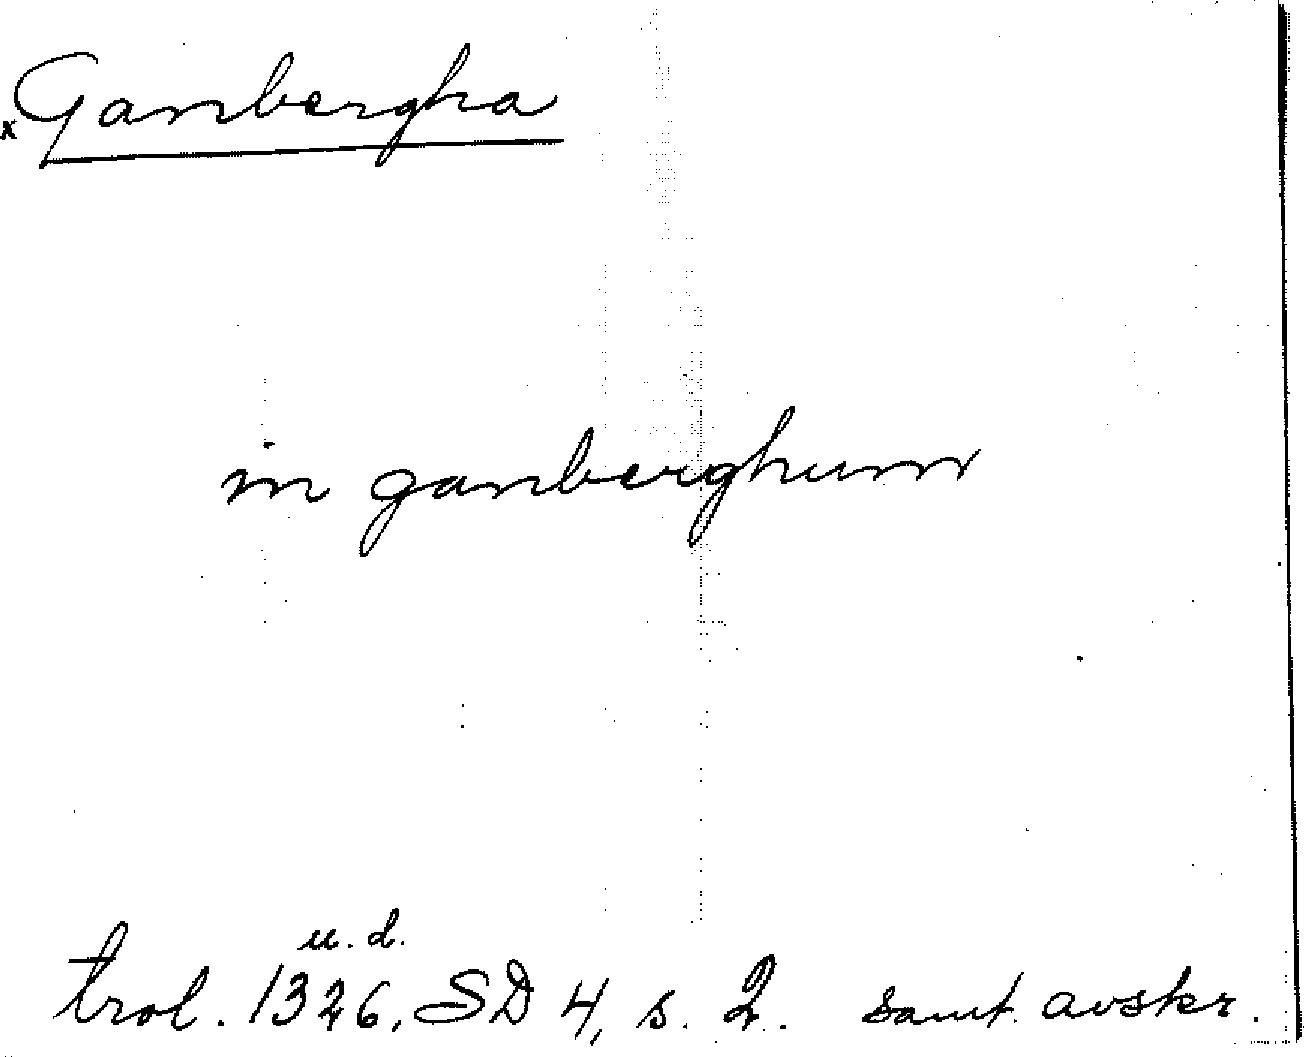 x Ganbergha
in ganberghum
u. d.
trol. 1326, SD 4, s. 2. samt. avskr.